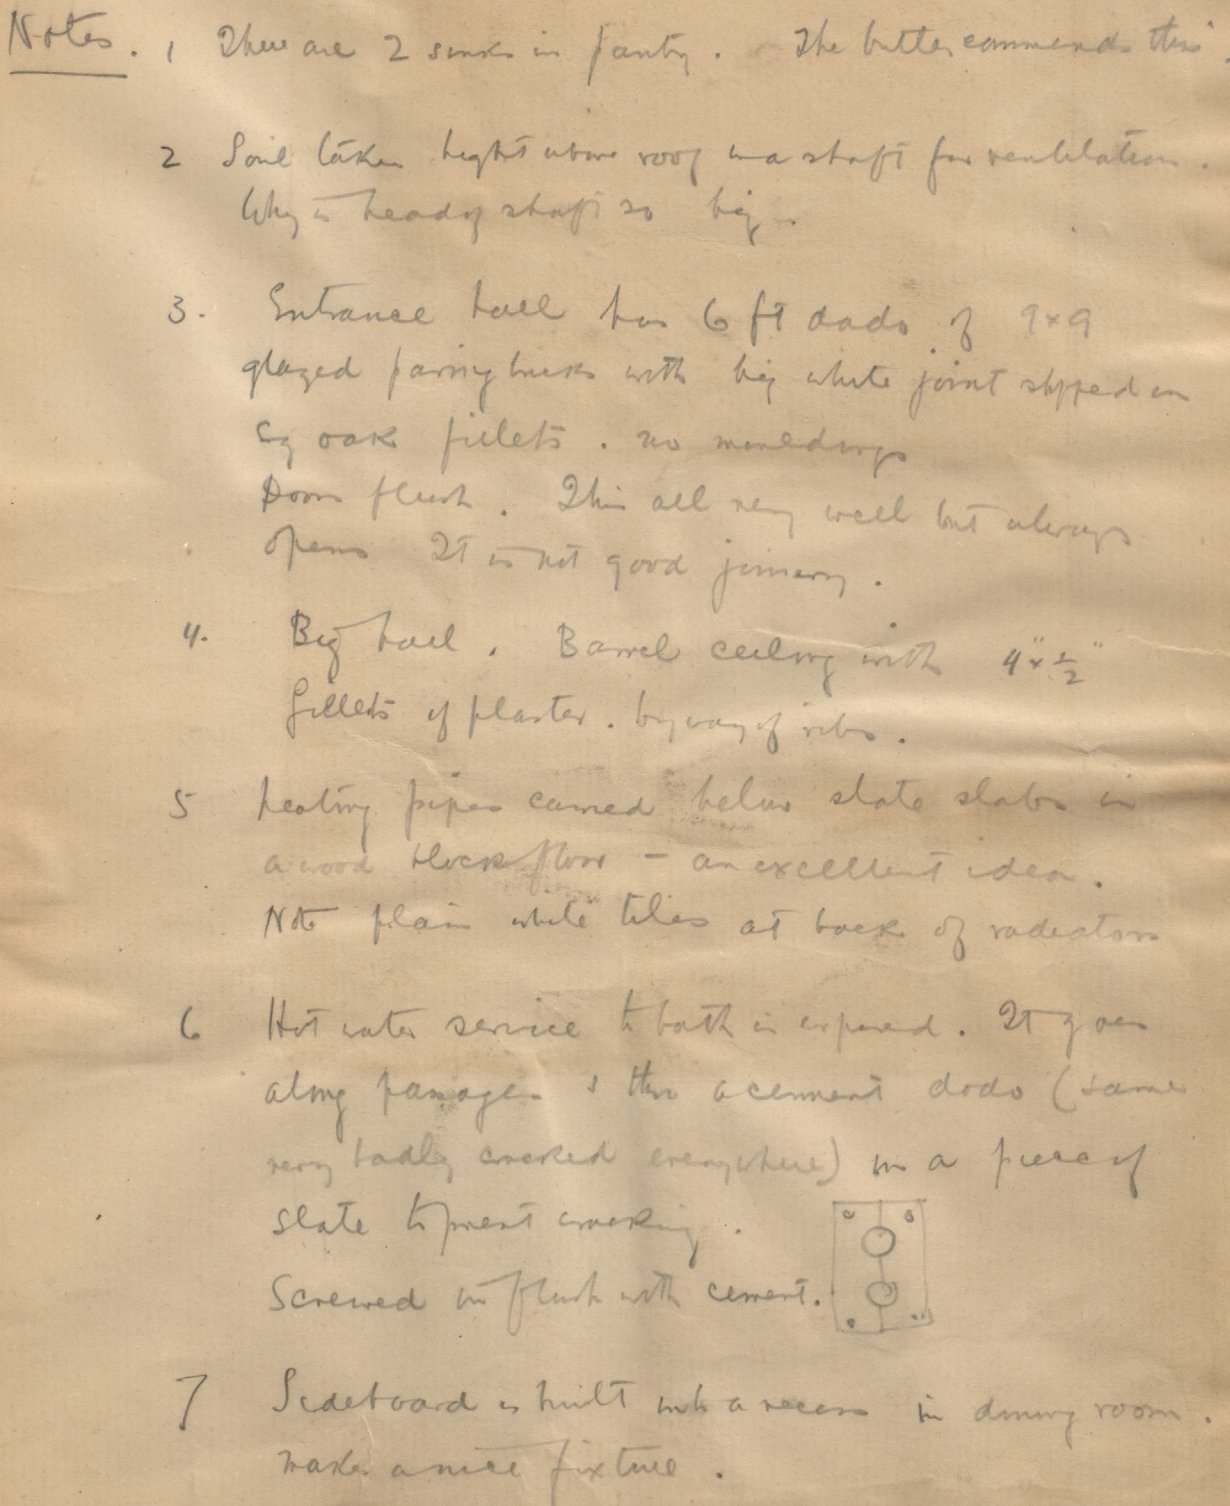 Notes. 1 There are 2 sinks in pantry. The butler commends this.
2 Soil taken height above roof in a shaft for ventilation.
Why is head of shaft so big.
3. Entrance hall has 6 ft dado of 9x9
glazed paving bricks with big white joint stopped in
by oak fillets. no mouldings
Doors flush. This all very well but always
opens It is not good joinery.
4. Big hall. Barrel ceiling with 4" x 1/2"
fillets of plaster. by way of ribs.
5 heating pipes carried below slate slabs in
a wood block floor – an excellent idea.
Note plain white tiles at back of radiators
6 Hot water service to bath is exposed. It goes
along passages & thro a cement dado (same
very badly cracked everywhere) in a piece of
slate to prevent cracking.
Screwed in flush with cement.
7 Sideboard is built into a recess in dining room.
makes a nice fixture.